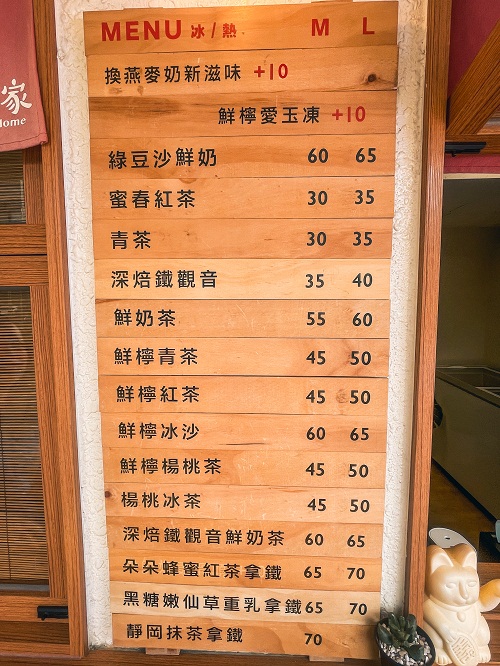 家
Home
MENU 冰/熱 M L
換燕麥奶新滋味 +10
鮮檸愛玉凍 +10
綠豆沙鮮奶 60 65
蜜春紅茶 30 35
青茶 30 35
深焙鐵觀音 35 40
鮮奶茶 55 60
鮮檸青茶 45 50
鮮檸紅茶 45 50
鮮檸冰沙 60 65
鮮檸楊桃茶 45 50
楊桃冰茶 45 50
深焙鐵觀音鮮奶茶 60 65
朵朵蜂蜜紅茶拿鐵 65 70
黑糖嫩仙草重乳拿鐵 65 70
靜岡抹茶拿鐵 70